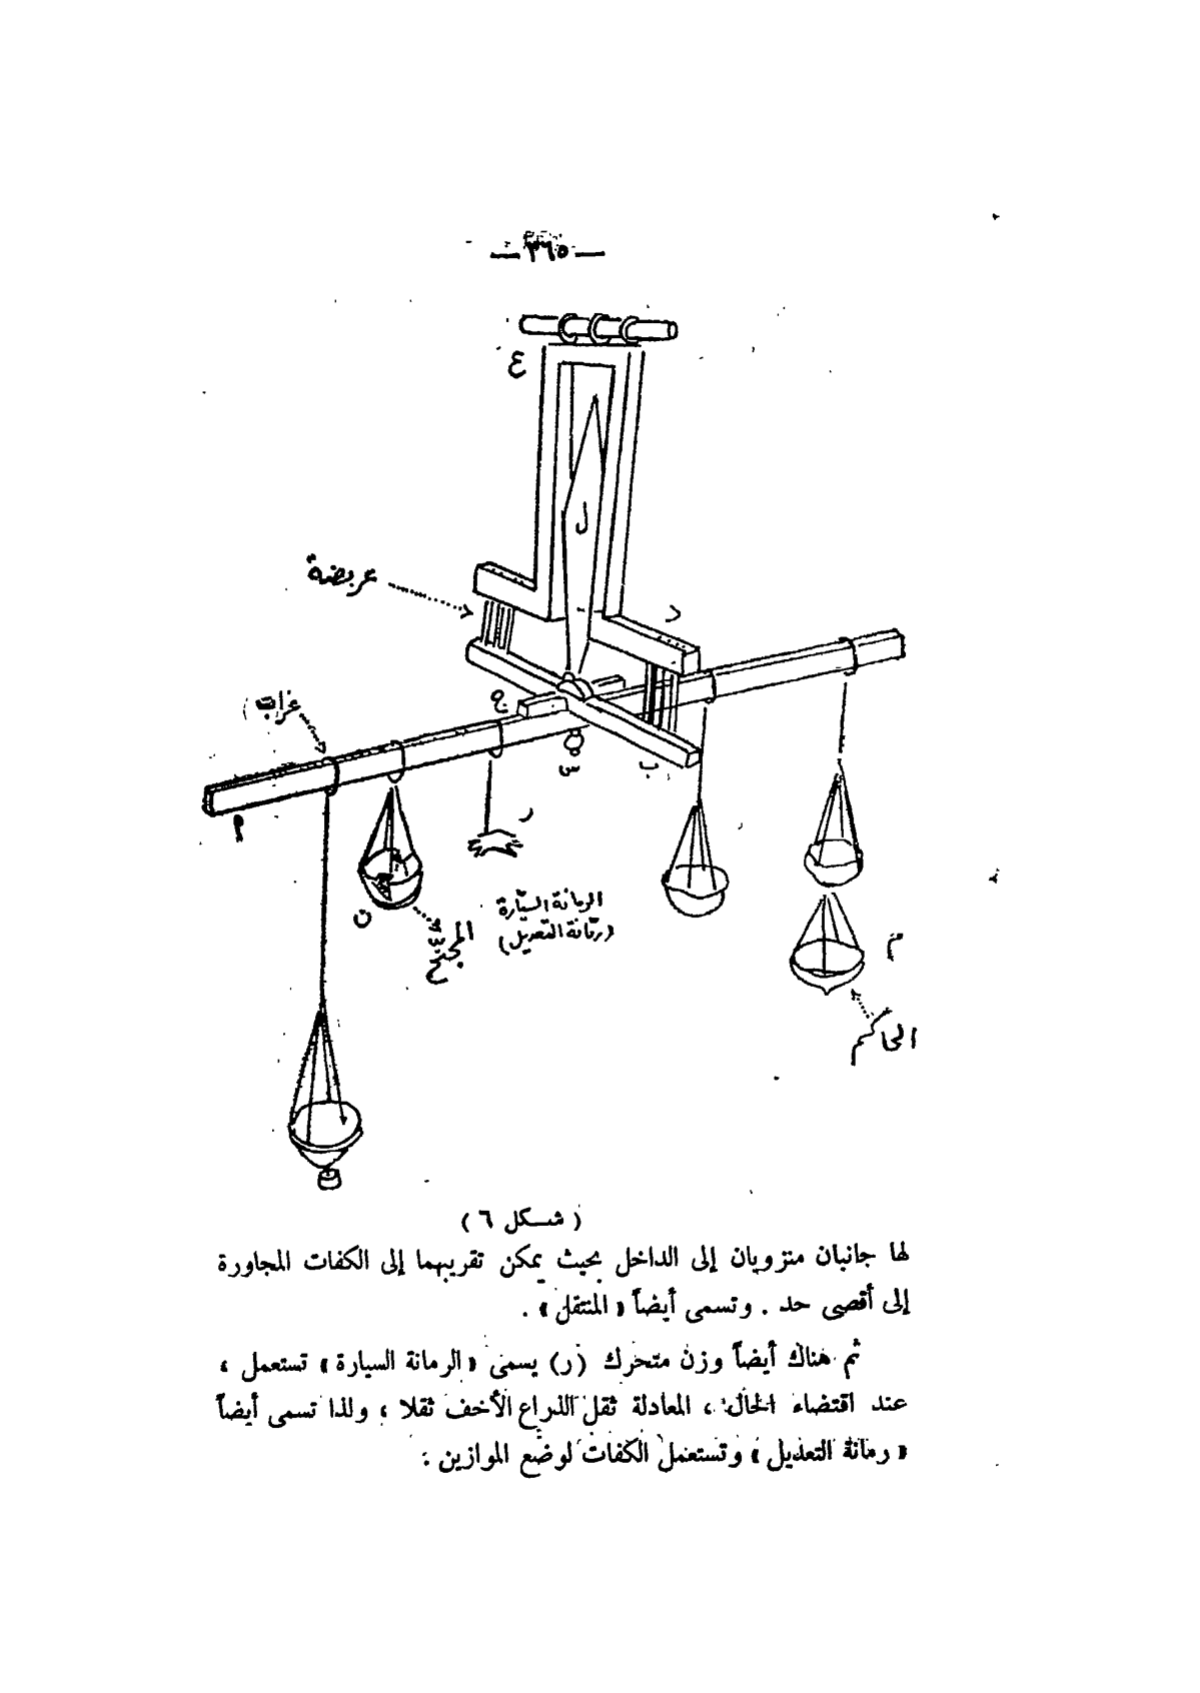 — ٣٦٥ —
ع
ل
عريضة
د
ج
غراب
س
ب
م
ر
ن
الرمانة السيّارة
(رمّانة التعديل)
المجنّح
م
الحاكم
( شكل ٦ )
لها جانبان منزويان إلى الداخل بحيث يمكن تقريبهما إلى الكفات المجاورة
إلى أقصى حد . وتسمى أيضاً « المنتقل » .
ثم هناك أيضاً وزن متحرك (ر) يسمى « الرمانة السيارة » تستعمل ،
عند اقتضاء الحال ، المعادلة ثقل الذراع الأخف ثقلا ، ولذا تسمى أيضاً
« رمانة التعديل » وتستعمل الكفات لوضع الموازين :